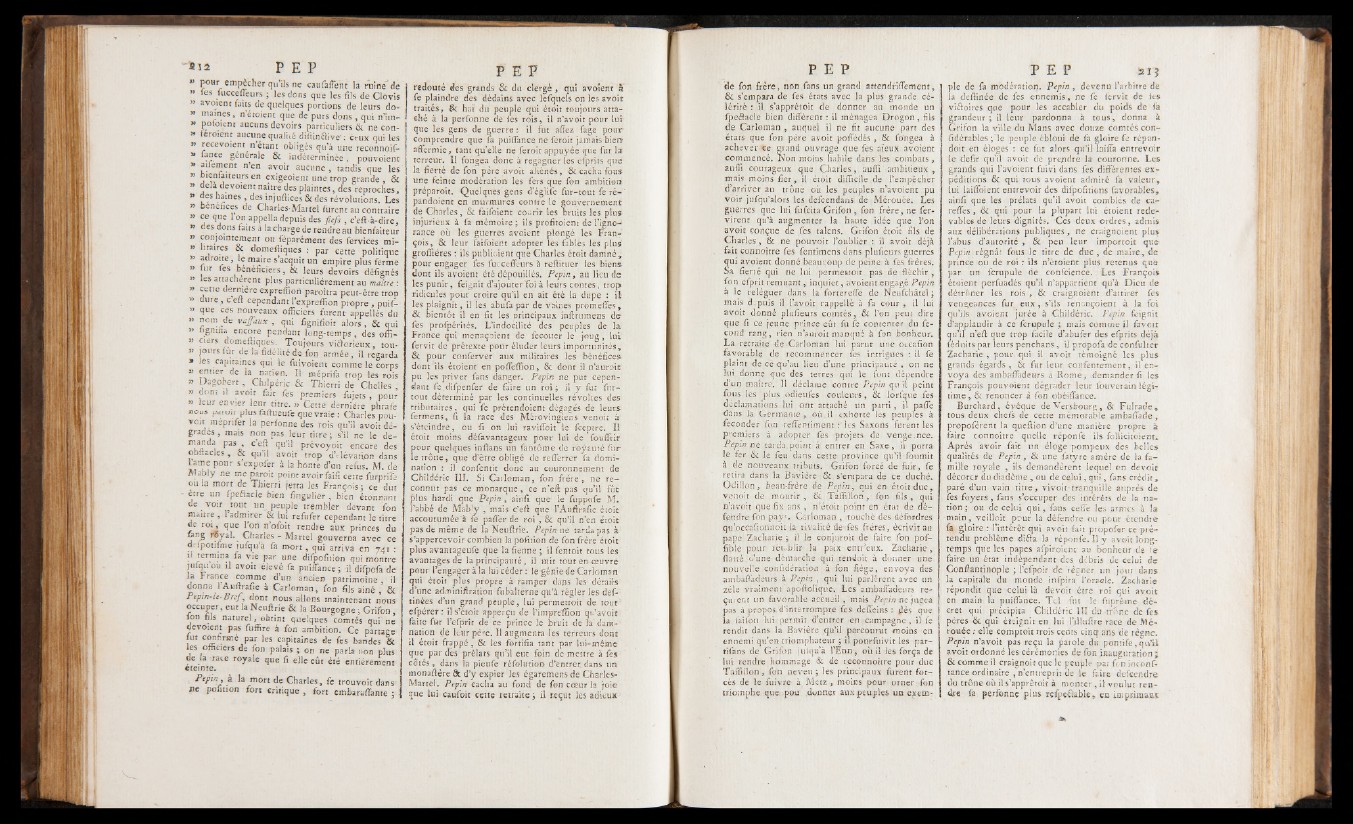 212 PEP
» pour empêcher qu'ils ne causassent la ruine de
» ses successeurs ; les dons que les fils de Clovis
» avoient faits de quelques portions de leurs do-
» maines, n'étoient que de purs dons, qui n'im-
» posoient aucuns devoirs particuliers & ne con-
» féroient aucune qualité distinctive : ceux qui les
» recevoient n'étant obligés qu'à une reconnois-
» sance générale & indéterminée, pouvoient
» aisément n'en avoir aucune, tandis que les
» bienfaiteurs en exigeoient une trop grande, &
» delà devoient naître des plaintes, des reproches,
» des haines, des injustices & des révolutions. Les
» bénéfices de Charles-Martel furent au contraire
» ce que l'on appella depuis des fiefs, c'est-à-dire,
» des dons faits à la charge de rendre au bienfaiteur
» conjointement ou séparément des services mi-
» litaires & domestiques : par cette politique
» adroite, le maire s'acquit un empire plus ferme
» sur ses bénéficiers, & leurs devoirs désignés
» les attachèrent plus particulièrement au maître :
» cette dernière expression paroîtra peut-être trop
» dure, c'est cependant l'expression propre, puis-
» que ces nouveaux officiers furent appellés du
» nom de vassaux, qui signifioit alors, & qui
» signifia encore pendant long-temps, des offi-
» ciers domestiques. Toujours victorieux, tou-
» jours sûr de la fidélité de son armée, il regarda
» les capitaines qui le suivoient comme le corps
» entier de la nation. Il méprisa trop les rois
» Dagobert, Chilpéric & Thierri de Chelles,
» dont il avoit fait ses premiers sujets, pour
» leur envier leur titre. » Cette dernière phrase
nous paroît plus fastueuse que vraie : Charles pou-
voit mépriser la personne des rois qu'il avoit dé-
gradés, mais non pas leur titre ; s'il ne le de-
manda pas, c'est qu'il prévoyoit encore des
obstacles, & qu'il avoit trop d'élévation dans
l'ame pour s'exposer à la honte d'un refus. M. de
Mably ne me paroît point avoir saisi cette surprise
où la mort de Thierri jetta les François ; ce dut
être un spectacle bien singulier, bien étonnant
de voir tout un peuple trembler devant son
maître, l'admirer & lui refuser cependant le titre
de roi, que l'on n'osoit rendre aux princes du
sang royal. Charles-Martel gouverna avec ce
despotisme jusqu'à sa mort, qui arriva en 741 :
il termina sa vie par une disposition qui montre
jusqu'où il avoit élevé sa puissance ; il disposa de
la France comme d'un ancien patrimoine, il
donna l'Austrasie à Carloman, son fils aîné, &
Pepin-le-Bref, dont nous allons maintenant nous
occuper, eut la Neustrie & la Bourgogne ; Grifon,
son fils naturel, obtint quelques comtés qui ne
devoient pas suffire à son ambition. Ce partage
fut confirmé par les capitaines de ses bandes &
les officiers de son palais ; on ne parla non plus
de la race royale que si elle eût été entiérement
éteinte.
Pepin, à la mort de Charles, se trouvoit dans
une position fort critique, fort embarassante ;
PEP
redouté des grands & du clergé, qui avoient à
se plaindre des dédains avec lesquels on les avoit
traités, & haï du peuple qui étoit toujours atta-
ché à la personne de ses rois, il n'avoit pour lui
que les gens de guerre : il fut assez sage pour
comprendre que sa puissance ne seroit jamais bien
affermie, tant qu'elle ne seroit appuyée que sur la
terreur. Il songea donc à regagner les esprits que
la fierté de son père avoit aliénés, & cacha sous
une feinte modération les fers que son ambition
préparoit. Quelques gens d'église sur-tout se ré-
pandoient en murmures contre le gouvernement
de Charles, & faisoient courir les bruits les plus
injurieux à sa mémoire ; ils profitoient de l'igno-
rance où les guerres avoient plongé les Fran-
çois, & leur faisoient adopter les fables les plus
grossières : ils publioient que Charles étoit damné,
pour engager ses successeurs à restituer les biens
dont ils avoient été dépouillés. Pepin, au lieu de
les punir, feignit d'ajouter foi à leurs contes, trop
ridicules pour croire qu'il en ait été la dupe : il
les plaignit, il les abusa par de vaines promesses,
& bientôt il en fit les principaux instrumens de
ses prospérités. L'indocilité des peuples de la
France qui menaçoient de secouer le joug, lui
servit de prétexte pour éluder leurs importunités,
& pour conserver aux militaires les bénéfices
dont ils étoient en possession, & dont il n'auroit
pu les priver sans danger. Pepin ne put cepen-
dant se dispenser de faire un roi ; il y fut sur-
tout déterminé par les continuelles révoltes des
tributaires, qui se prétendoient dégagés de leurs
sermens, si la race des Mérovingiens venoit à
s'éteindre, ou si on lui ravissoit le sceptre. Il
étoit moins désavantageux pour lui de souffrir
pour quelques instans un fantôme de royauté sur
le trône, que d'être obligé de resserrer sa domi-
nation : il consentit donc au couronnement de
Childéric III. Si Carloman, son frère, ne re-
connut pas ce monarque, ce n'est pas qu'il fût
plus hardi que Pepin, ainsi que le suppose M.
l'abbé de Mably, mais c'est que l'Austrasie étoit
accoutumée à se passer de roi, & qu'il n'en étoit
pas de même de la Neustrie. Pepin ne tarda pas à
s'appercevoir combien la position de son frère étoit
plus avantageuse que la sienne ; il sentoit tous les
avantages de la principauté, il mit tout en œuvre
pour l'engager à la lui céder : le génie de Carloman
qui étoit plus propre à ramper dans les détails
d'une administration subalterne qu'à régler les des-
tinées d'un grand peuple, lui permettoit de tout
espérer : il s'étoit apperçu de l'impression qu'avoit
faite sur l'esprit de ce prince le bruit de la dam-
nation de leur père. Il augmenta les terreurs dont
il étoit frappé, & les fortifia tant par lui-même
que par des prélats qu'il eut soin de mettre à ses
côtés, dans la pieuse résolution d'entrer dans un
monastère & d'y expier les égaremens de Charles-
Martel. Pepin cacha au fond de son cœur la joie
que lui causoit cette retraite ; il reçut les adieux
PEP
de son frère, non sans un grand attendrissement,
& s'empara de ses états avec la plus grande cé-
lérité : il s'apprêtoit de donner au monde un
spectacle bien différent : il ménagea Drogon, fils
de Carloman, auquel il ne fit aucune part des
états que son père avoit possédés, & songea à
achever ce grand ouvrage que ses aïeux avoient
commencé. Non moins habile dans les combats,
aussi courageux que Charles, aussi ambitieux,
mais moins fier, il étoit difficile de l'empêcher
d'arriver au trône où les peuples n'avoient pu
voir jusqu'alors les descendans de Mérouée. Les
guerres que lui suscita Grifon, son frère, ne ser-
virent qu'à augmenter la haute idée que l'on
avoit conçue de ses talens. Grifon étoit fils de
Charles, & ne pouvoit l'oublier : il avoit déjà
fait connoître ses sentimens dans plusieurs guerres
qui avoient donné beaucoup de peine à ses frères.
Sa fierté qui ne lui permettoit pas de fléchir,
son esprit remuant, inquiet, avoient engagé Pepin
à le reléguer dans la forteresse de Neufchâtel ;
mais depuis il l'avoit rappellé à sa cour, il lui
avoit donné plusieurs comtés, & l'on peut dire
que si ce jeune prince eût su se contenter du se-
cond rang, rien n'auroit manqué à son bonheur.
La retraite de Carloman lui parut une occasion
favorable de recommencer ses intrigues : il se
plaint de ce qu'au lieu d'une principauté, on ne
lui donne que des terres qui le font dépendre
d'un maître. Il déclame contre Pepin qu'il peint
sous les plus odieuses couleurs, & lorsque ses
déclamations lui ont attaché un parti, il passe
dans la Germanie, où il exhorte les peuples à
seconder son ressentiment : les Saxons furent les
premiers à adopter ses projets de vengeance.
Pepin ne tarda point à entrer en Saxe, il porta
le fer & le feu dans cette province qu'il soumit
à de nouveaux tributs. Grifon forcé de fuir, se
retira dans la Bavière & s'empara de ce duché.
Odillon, beau-frère de Pepin, qui en étoit duc,
venoit de mourir, & Tassillon, son fils, qui
n'avoit que six ans, n'étoit point en état de dé-
fendre son pays. Carloman, touché des désordres
qu'occasionnoit la rivalité de ses frères, écrivit au
pape Zacharie ; il le conjuroit de faire son pos-
sible pour rétablir la paix entr'eux. Zacharie,
flatté d'une démarche qui tendoit à donner une
nouvelle considération à son siège, envoya des
ambassadeurs à Pepin, qui lui parlèrent avec un
zèle vraiment apostolique. Les ambassadeurs re-
çurent un favorable accueil, mais Pepin ne jugea
pas à propos d'interrompre ses desseins : dès que
la saison lui permit d'entrer en campagne, il se
rendit dans la Bavière qu'il parcourut moins en
ennemi qu'en triomphateur ; il poursuivit les par-
tisans de Grifon jusqu'à l'Enn, où il les força de
lui rendre hommage & de reconnoître pour duc
Tassillon, son neveu ; les principaux furent for-
cés de le suivre à Metz, moins pour orner son
triomphe que pour donner aux peuples un exem-
PEP 213
ple de sa modération. Pepin, devenu l'arbitre de
la destinée de ses ennemis, ne se servit de ses
victoires que pour les accabler du poids de sa
grandeur ; il leur pardonna à tous, donna à
Grifon la ville du Mans avec douze comtés con-
sidérables ; le peuple ébloui de sa gloire se répan-
doit en éloges : ce fut alors qu'il laissa entrevoir
le desir qu'il avoit de prendre la couronne. Les
grands qui l'avoient suivi dans ses différentes ex-
péditions & qui tous avoient admiré sa valeur,
lui laissoient entrevoir des dispositions favorables,
ainsi que les prélats qu'il avoit comblés de ca-
resses, & qui pour la plupart lui étoient rede-
vables de leurs dignités. Ces deux ordres, admis
aux délibérations publiques, ne craignoient plus
l'abus d'autorité, & peu leur importoit que
Pepin régnât sous le titre de duc, de maire, de
prince ou de roi : ils n'étoient plus retenus que
par un scrupule de conscience. Les François
étoient persuadés qu'il n'appartient qu'à Dieu de
détrôner les rois, & craignoient d'attirer ses
vengeances sur eux, s'ils renonçoient à la foi
qu'ils avoient jurée à Childéric. Pepin feignit
d'applaudir à ce scrupule ; mais comme il savoit
qu'il n'est que trop facile d'abuser des esprits déjà
séduits par leurs penchans, il proposa de consulter
Zacharie, pour qui il avoit témoigné les plus
grands égards, & sur leur consentement, il en-
voya des ambassadeurs à Rome, demander si les
François pouvoient dégrader leur souverain légi-
time, & renoncer à son obéissance.
Burchard, évêque de Versbourg, & Fulrade,
tous deux chefs de cette mémorable ambassade,
proposèrent la question d'une manière propre à
faire connoître quelle réponse ils sollicitoient.
Après avoir fait un éloge pompeux des belles
qualités de Pepin, & une satyre amère de la fa-
mille royale, ils demandèrent lequel on devoit
décorer du diadême, ou de celui, qui, sans crédit,
paré d'un vain titre, vivoit tranquille auprès de
ses foyers, sans s'occuper des intérêts de la na-
tion ; ou de celui qui, sans cesse les armes à la
main, veilloit pour la défendre ou pour étendre
sa gloire : l'intérêt qui avoit fait proposer ce pré-
tendu problême dicta la réponse. Il y avoit long-
temps que les papes aspiroient au bonheur de se
faire un état indépendant des débris de celui de
Constantinople ; l'espoir de régner un jour dans
la capitale du monde inspira l'oracle. Zacharie
répondit que celui-là devoit être roi qui avoit
en main la puissance. Tel fut le suprême dé-
cret qui précipita Childéric III du trône de ses
pères & qui éteignit en lui l'illustre race de Mé-
rouée : elle comptoit trois cens cinq ans de règne.
Pepin n'avoit pas reçu la parole du pontife, qu'il
avoit ordonné les cérémonies de son inauguration ;
& comme il craignoit que le peuple par son incons-
tance ordinaire, n'entreprît de le faire descendre
du trône où il s'apprêtoit à monter, il voulut ren-
dre sa personne plus respectable, en imprimant